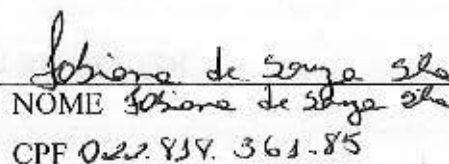 Fabiana de Souza Silva
NOME Fabiana de Souza Silva
CPF 022.818.361.85